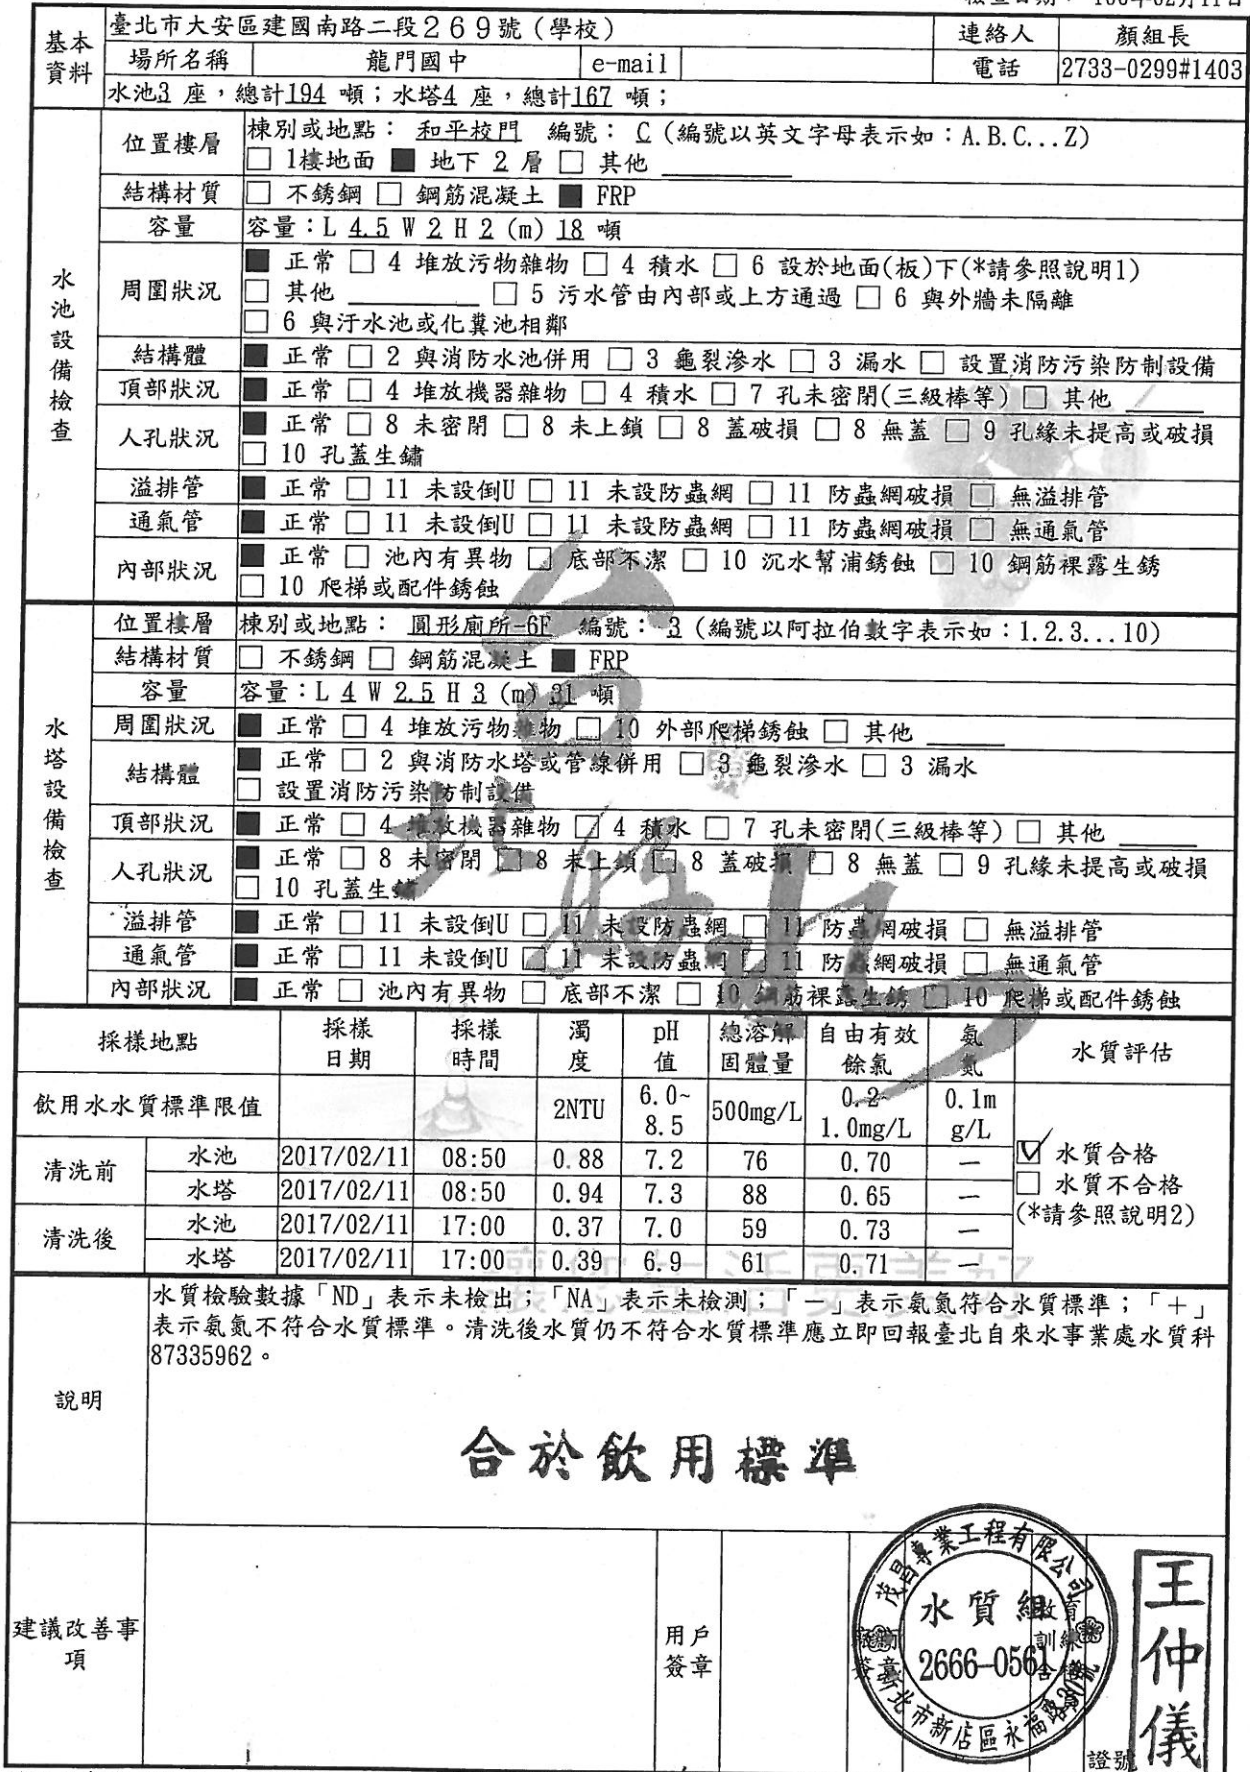 臺北市大安區建國南路二段269號(學校) 連絡人 顏組長
基本資料 場所名稱 龍門國中 e-mail 電話 2733-0299#1403
水池3 座，總計194 噸；水塔4 座，總計167 噸；
水池設備檢查
位置樓層 棟別或地點： 和平校門 編號： C (編號以英文字母表示如：A.B.C...Z)
□ 1樓地面 ■ 地下 2 層 □ 其他
結構材質 □ 不銹鋼 □ 鋼筋混凝土 ■ FRP
容量 容量：L 4.5 W 2 H 2 (m) 18 噸
周圍狀況 ■ 正常 □ 4 堆放污物雜物 □ 4 積水 □ 6 設於地面(板)下(*請參照說明1)
□ 其他 □ 5 污水管由內部或上方通過 □ 6 與外牆未隔離
□ 6 與汙水池或化糞池相鄰
結構體 ■ 正常 □ 2 與消防水池併用 □ 3 龜裂滲水 □ 3 漏水 □ 設置消防污染防制設備
頂部狀況 ■ 正常 □ 4 堆放機器雜物 □ 4 積水 □ 7 孔未密閉(三級棒等) □ 其他
人孔狀況 ■ 正常 □ 8 未密閉 □ 8 未上鎖 □ 8 蓋破損 □ 8 無蓋 □ 9 孔緣未提高或破損
□ 10 孔蓋生鏽
溢排管 ■ 正常 □ 11 未設倒U □ 11 未設防蟲網 □ 11 防蟲網破損 □ 無溢排管
通氣管 ■ 正常 □ 11 未設倒U □ 11 未設防蟲網 □ 11 防蟲網破損 □ 無通氣管
內部狀況 ■ 正常 □ 池內有異物 □ 底部不潔 □ 10 沉水幫浦銹蝕 □ 10 鋼筋裸露生銹
□ 10 爬梯或配件銹蝕
水塔設備檢查
位置樓層 棟別或地點： 圓形廁所-6F 編號： 3 (編號以阿拉伯數字表示如：1.2.3...10)
結構材質 □ 不銹鋼 □ 鋼筋混凝土 ■ FRP
容量 容量：L 4 W 2.5 H 3 (m) 31 噸
周圍狀況 ■ 正常 □ 4 堆放污物雜物 □ 10 外部爬梯銹蝕 □ 其他
結構體 ■ 正常 □ 2 與消防水塔或管線併用 □ 3 龜裂滲水 □ 3 漏水
□ 設置消防污染防制設備
頂部狀況 ■ 正常 □ 4 堆放機器雜物 □ 4 積水 □ 7 孔未密閉(三級棒等) □ 其他
人孔狀況 ■ 正常 □ 8 未密閉 □ 8 未上鎖 □ 8 蓋破損 □ 8 無蓋 □ 9 孔緣未提高或破損
□ 10 孔蓋生鏽
溢排管 ■ 正常 □ 11 未設倒U □ 11 未設防蟲網 □ 11 防蟲網破損 □ 無溢排管
通氣管 ■ 正常 □ 11 未設倒U □ 11 未設防蟲網 □ 11 防蟲網破損 □ 無通氣管
內部狀況 ■ 正常 □ 池內有異物 □ 底部不潔 □ 10 鋼筋裸露生銹 □ 10 爬梯或配件銹蝕
採樣地點 採樣日期 採樣時間 濁度 pH值 總溶解固體量 自由有效餘氯 氨氮 水質評估
飲用水水質標準限值 2NTU 6.0~8.5 500mg/L 0.2~1.0mg/L 0.1mg/L
清洗前 水池 2017/02/11 08:50 0.88 7.2 76 0.70 —
水塔 2017/02/11 08:50 0.94 7.3 88 0.65 —
清洗後 水池 2017/02/11 17:00 0.37 7.0 59 0.73 —
水塔 2017/02/11 17:00 0.39 6.9 61 0.71 —
☑ 水質合格
□ 水質不合格
(*請參照說明2)
說明
水質檢驗數據「ND」表示未檢出；「NA」表示未檢測；「－」表示氨氮符合水質標準；「＋」
表示氨氮不符合水質標準。清洗後水質仍不符合水質標準應立即回報臺北自來水事業處水質科
87335962。
合於飲用標準
建議改善事項
用戶簽章
茂昌專業工程有限公司
水質組
2666-0561
王仲儀
證號